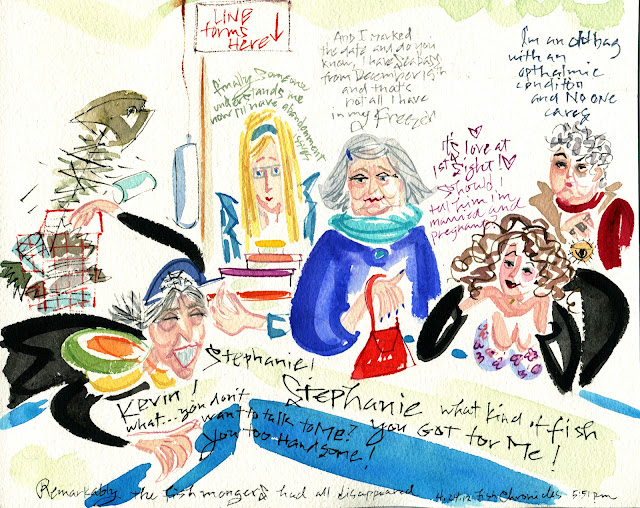 LINE
forms
Here
Finally Someone
understands me
now I'll have abandonment
issues
And I marked
the date and do you
know, I have sea bass
from December 19th
and that's
not all I have
in my freezer
I'm an old bag
with an
opthalmic
condition
and No one
cares
it's
love at
1st Sight!
Should I
tell him I'm
married and
pregnant
Stephanie!
Kevin!
what...you don't
want to talk to Me?
You too Handsome!
Stephanie what kind of fish
you GOT for Me!
Remarkably the fishmongers had all disappeared
fish Chronicles 5:51 pm